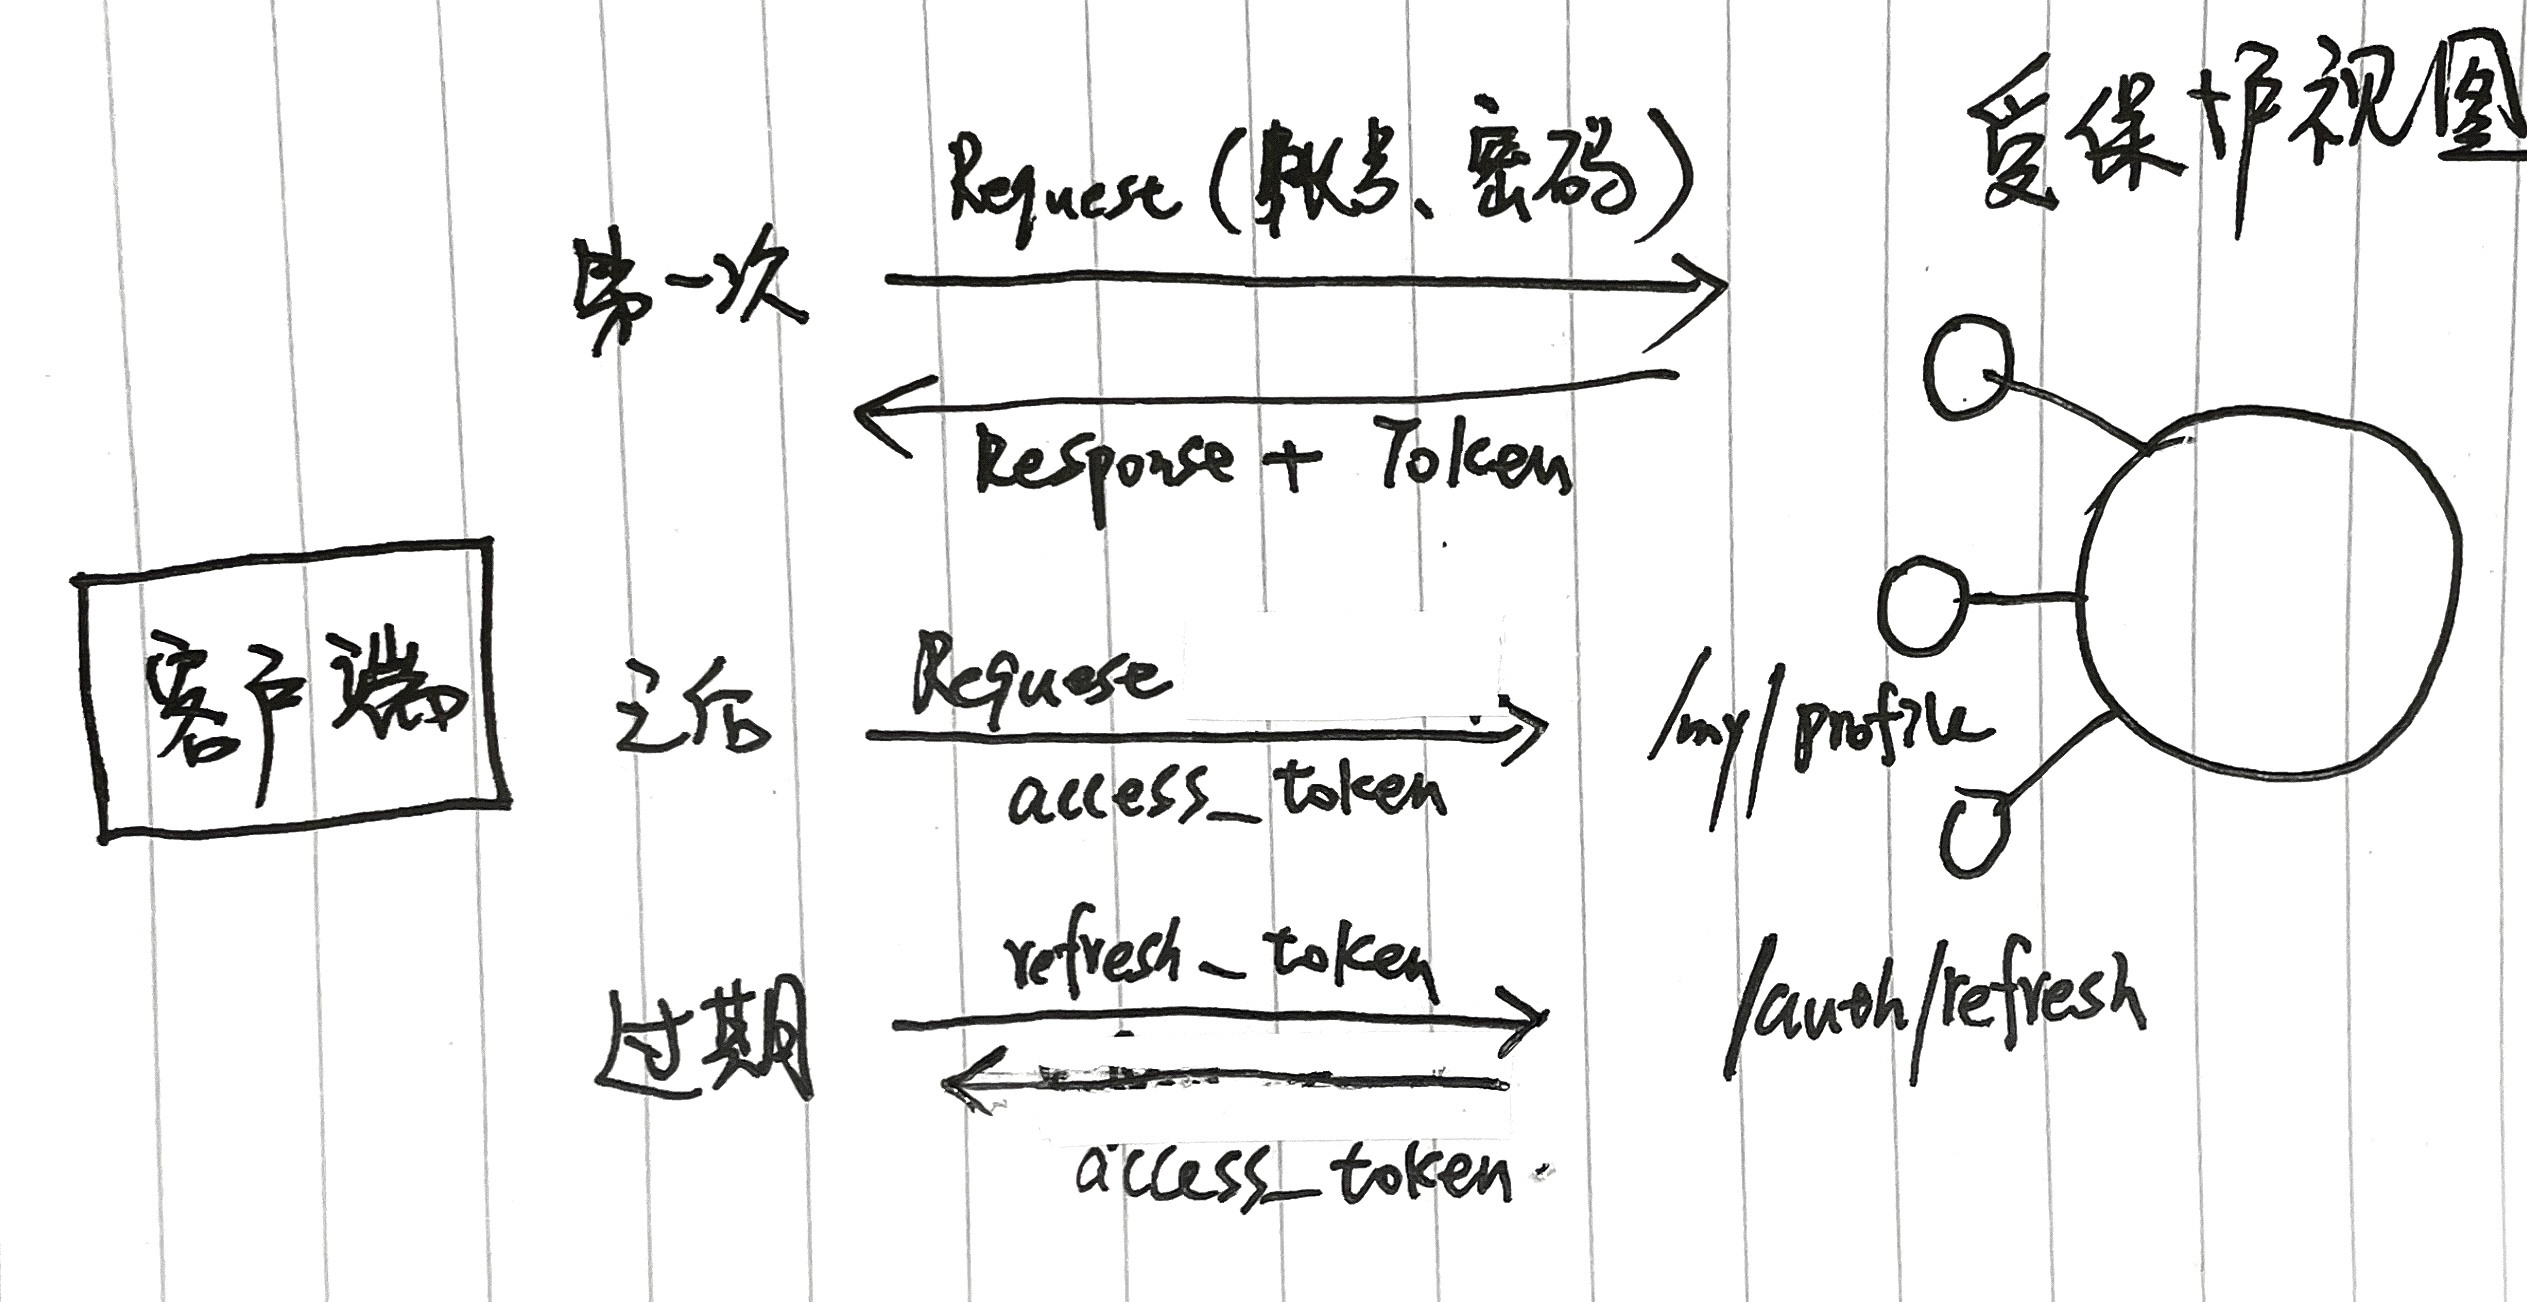 受保护视图
Request (账号、密码)
第一次
Response + Token
客户端
之后
Request
/my/profile
access_token
refresh_token
过期
/auth/refresh
access_token